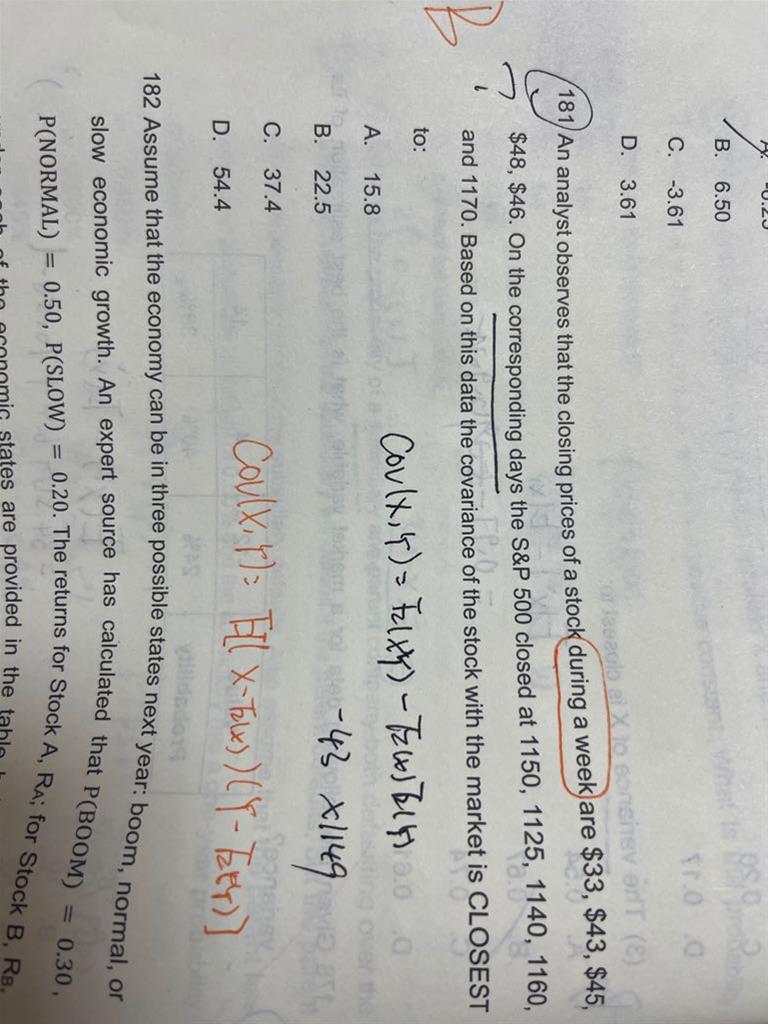 B. 6.50
C. -3.61
D. 3.61
B
181 An analyst observes that the closing prices of a stock during a week are $33, $43, $45,
$48, $46. On the corresponding days the S&P 500 closed at 1150, 1125, 1140, 1160,
and 1170. Based on this data the covariance of the stock with the market is CLOSEST
to:
A. 15.8
B. 22.5
C. 37.4
D. 54.4
Cov(X,Y) = E(XY) - E(X)E(Y)
-43 X1149
Cov(X,Y) = E[(X-E(X))(Y-E(Y))]
182 Assume that the economy can be in three possible states next year: boom, normal, or
slow economic growth. An expert source has calculated that P(BOOM) = 0.30,
P(NORMAL) = 0.50, P(SLOW) = 0.20. The returns for Stock A, RA; for Stock B, RB,
of the economic states are provided in the table